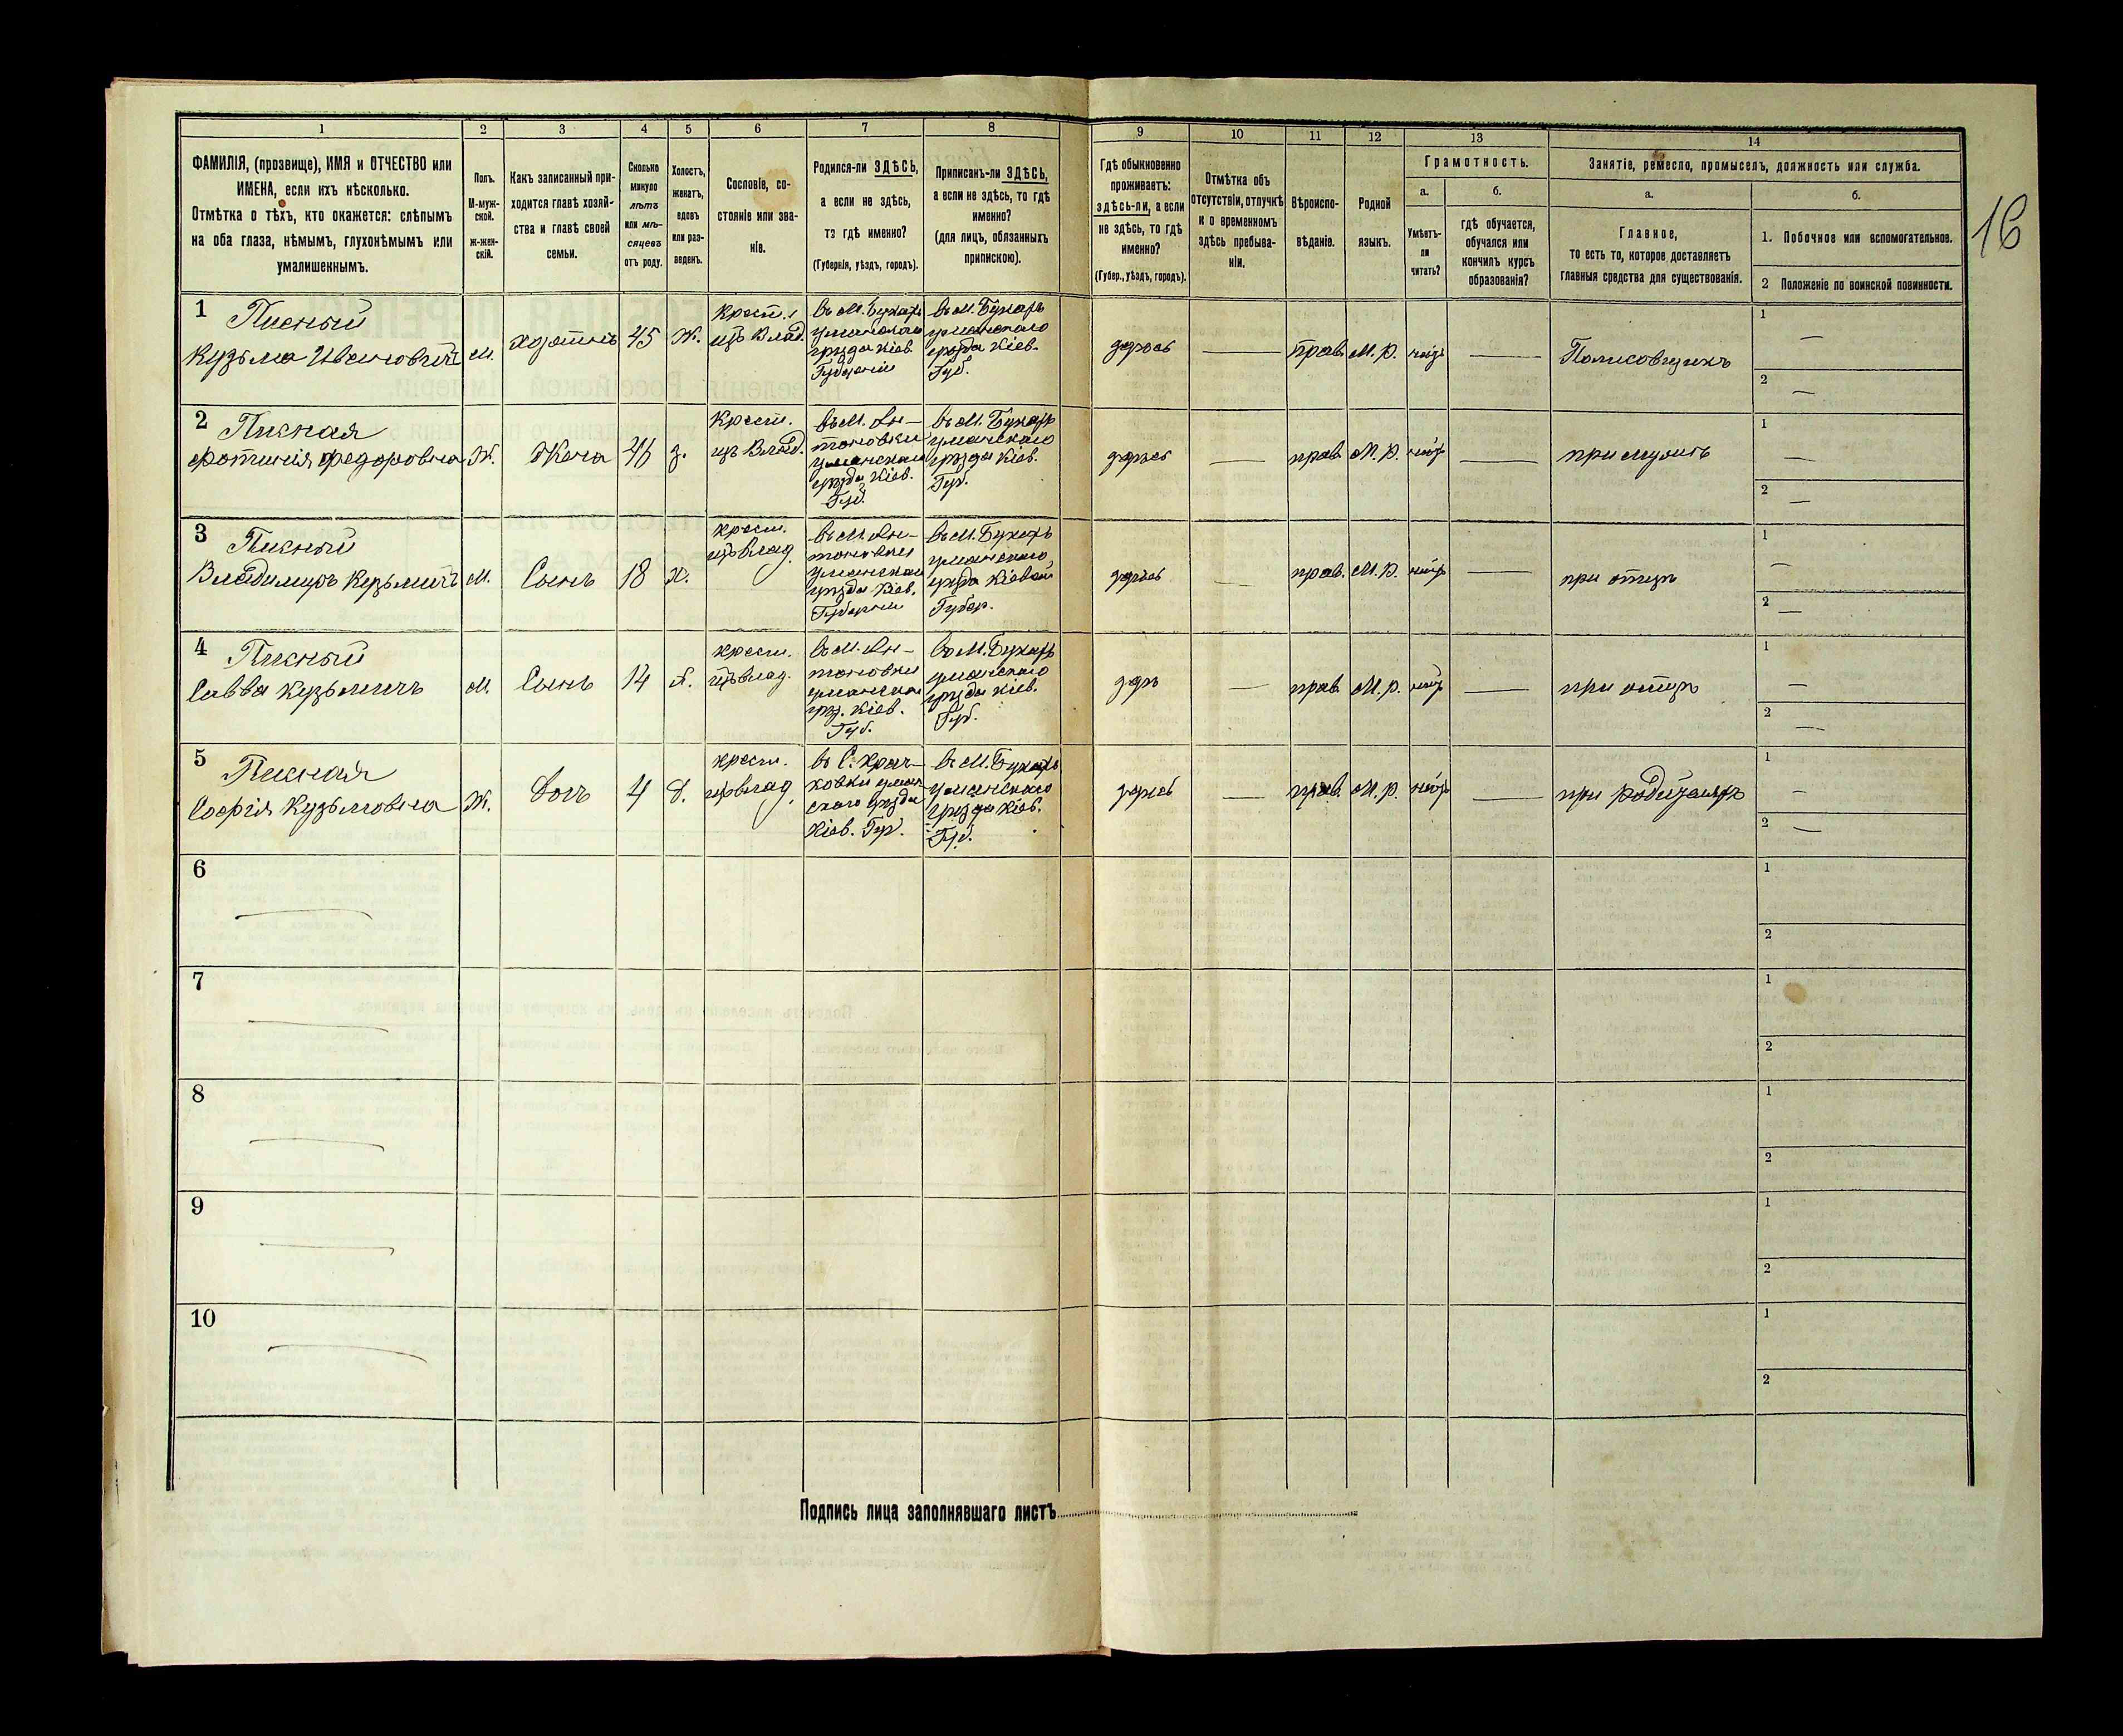 1 2 3 4 5 6 7 8 9 10 11 12 13 14
ФАМИЛІЯ, (прозвище), ИМЯ и ОТЧЕСТВО или
ИМЕНА, если ихъ нѣсколько.
Отмѣтка о тѣхъ, кто окажется: слѣпымъ
на оба глаза, нѣмымъ, глухонѣмымъ или
умалишеннымъ.
Полъ.
М-муж-
ской.
ж-жен-
скій.
Какъ записанный при-
ходится главѣ хозяй-
ства и главѣ своей
семьи.
Сколько
минуло
лѣтъ
или мѣ-
сяцевъ
отъ роду.
Холостъ,
женатъ,
вдовъ
или раз-
веденъ.
Сословіе, со-
стояніе или зва-
ніе.
Родился-ли ЗДѢСЬ,
а если не здѣсь,
то гдѣ именно?
(Губернія, уѣздъ, городъ).
Приписанъ-ли ЗДѢСЬ,
а если не здѣсь, то гдѣ
именно?
(для лицъ, обязанныхъ
припискою).
Гдѣ обыкновенно
проживаетъ:
здѣсь-ли, а если
не здѣсь, то гдѣ
именно?
(Губер., уѣздъ, городъ).
Отмѣтка объ
отсутствіи, отлучкѣ
и о временномъ
здѣсь пребыва-
ніи.
Вѣроиспо-
вѣданіе.
Родной
языкъ.
Грамотность.
а.
Умѣетъ-
ли
читать?
б.
гдѣ обучается,
обучался или
кончилъ курсъ
образованія?
Занятіе, ремесло, промыселъ, должность или служба.
а.
Главное,
то есть то, которое доставляетъ
главныя средства для существованія.
б.
1. Побочное или вспомогательное.
2 Положеніе по воинской повинности.
16
1 Писный
Кузьма Ивановичъ
м.
хозяинъ
45
ж.
крест.
изъ Влад.
въ М. Бухахъ
уманскаго
уѣзда Кіев.
Губерніи
въ М. Бухахъ
уманскаго
уѣзда Кіев.
Губ.
здѣсь
—
прав.
М. р.
нѣтъ
—
Полисовщикъ
1 —
2 —
2 Писная
Фотинія Федоровна
Ж.
Жена
46
з.
Крест.
изъ Влад.
въ М. Ан-
тоновки
уманскаго
уѣзда Кіев.
Губ.
въ М. Бухахъ
уманскаго
уѣзда Кіев.
Губ.
здѣсь
—
прав.
М. р.
нѣтъ
—
при мужѣ
1 —
2 —
3 Писный
Владимиръ Кузьмичъ
м.
Сынъ
18
х.
крест.
изъ влад.
въ М. Ан-
тоновки
уманскаго
уѣзда Кіев.
Губерніи
въ М. Бухахъ
уманскаго
уѣзда Кіевской
Губер.
здѣсь
—
прав.
М. р.
нѣтъ
—
при отцѣ
1 —
2 —
4 Писный
Савва Кузьмичъ
м.
Сынъ
14
х.
крест.
изъ влад.
въ М. Ан-
тоновки
уманскаго
уѣз. Кіев.
Губ.
въ М. Бухахъ
уманскаго
уѣзда Кіев.
Губ.
здѣсь
—
прав.
М. р.
нѣтъ
—
при отцѣ
1 —
2 —
5 Писная
Софія Кузьмовна
Ж.
Дочь
4
д.
крест.
изъ влад.
ковки уман
скаго уѣзда
Кіев. Губ.
въ М. Бухахъ
уманскаго
уѣзда Кіев.
Губ.
здѣсь
—
прав.
М. р.
нѣтъ
—
при родителяхъ
1 —
2 —
6 —
1
2
7 —
1
2
8 —
1
2
9 —
1
2
10 —
1
2
Подпись лица заполнявшаго листъ